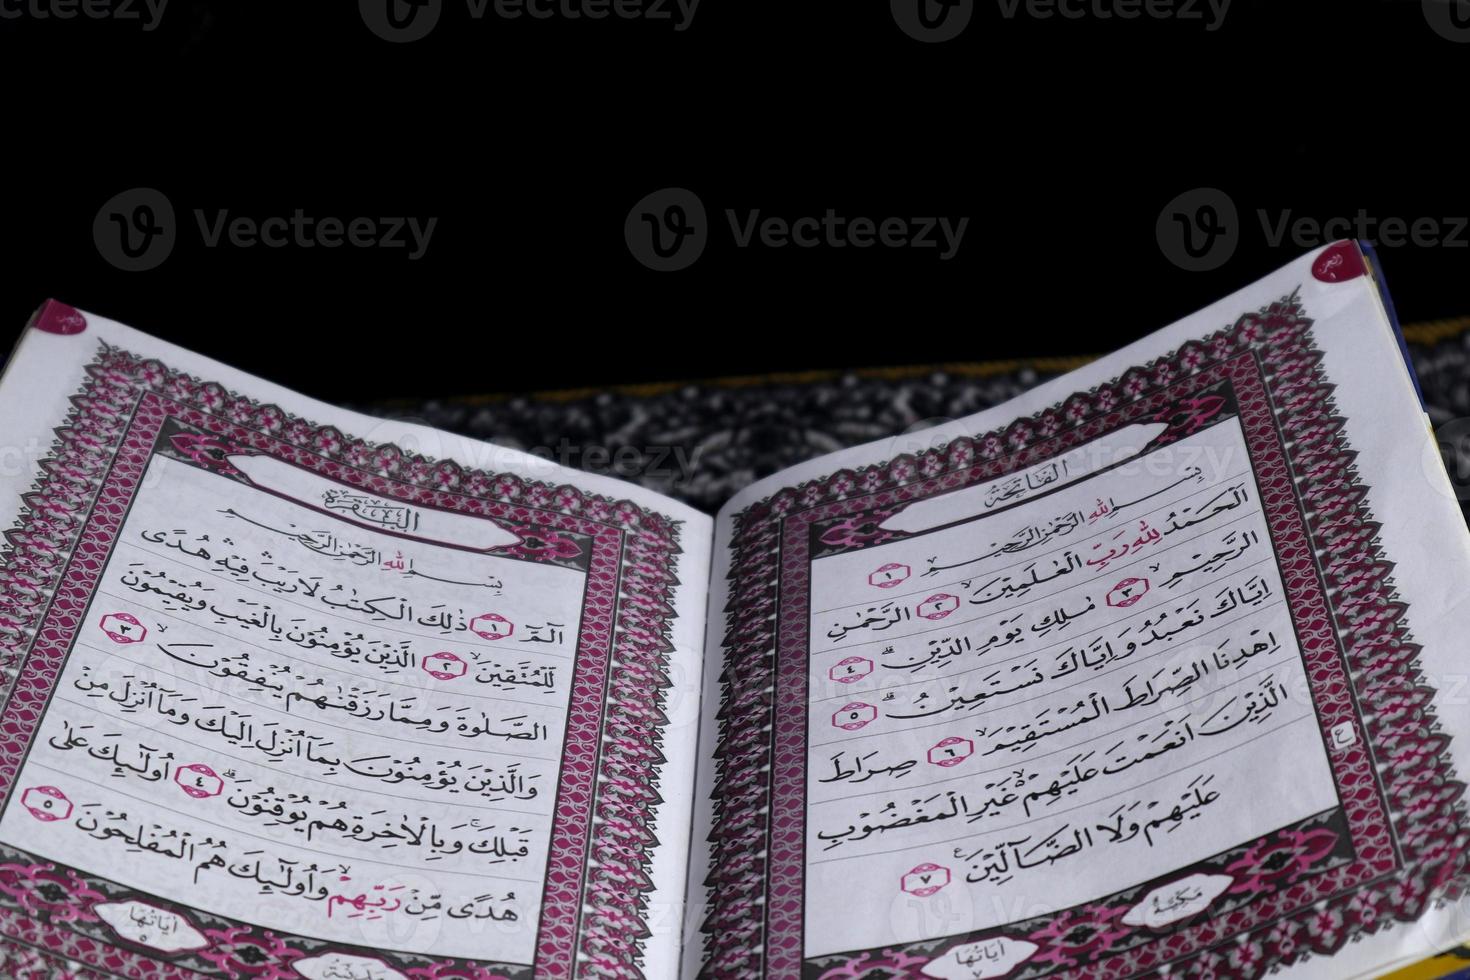 الفاتحة
بِسْمِ اللهِ الرَّحْمٰنِ الرَّحِيْمِ ١
اَلْحَمْدُ لِلّٰهِ رَبِّ الْعٰلَمِيْنَۙ ٢ الرَّحْمٰنِ
الرَّحِيْمِۙ ٣ مٰلِكِ يَوْمِ الدِّيْنِۗ ٤
اِيَّاكَ نَعْبُدُ وَاِيَّاكَ نَسْتَعِيْنُۗ ٥
اِهْدِنَا الصِّرَاطَ الْمُسْتَقِيْمَۙ ٦ صِرَاطَ
الَّذِيْنَ اَنْعَمْتَ عَلَيْهِمْ ەۙ غَيْرِ الْمَغْضُوْبِ
عَلَيْهِمْ وَلَا الضَّاۤلِّيْنَ ࣖ ٧
مَكِّيَّةٌ
اٰيَاتُهَا ٧
البقرة
بِسْمِ اللهِ الرَّحْمٰنِ الرَّحِيْمِ
الۤمّۤ ١ ذٰلِكَ الْكِتٰبُ لَا رَيْبَۛ فِيْهِۛ هُدًى
لِّلْمُتَّقِيْنَۙ ٢ الَّذِيْنَ يُؤْمِنُوْنَ بِالْغَيْبِ وَيُقِيْمُوْنَ
الصَّلٰوةَ وَمِمَّا رَزَقْنٰهُمْ يُنْفِقُوْنَۙ ٣
وَالَّذِيْنَ يُؤْمِنُوْنَ بِمَآ اُنْزِلَ اِلَيْكَ وَمَآ اُنْزِلَ مِنْ
قَبْلِكَۚ وَبِالْاٰخِرَةِ هُمْ يُوْقِنُوْنَۗ ٤ اُولٰۤىِٕكَ عَلٰى
هُدًى مِّنْ رَّبِّهِمْۙ وَاُولٰۤىِٕكَ هُمُ الْمُفْلِحُوْنَ ٥
اٰيَاتُهَا ٥
Vecteezy
Vecteezy
Vecteezy